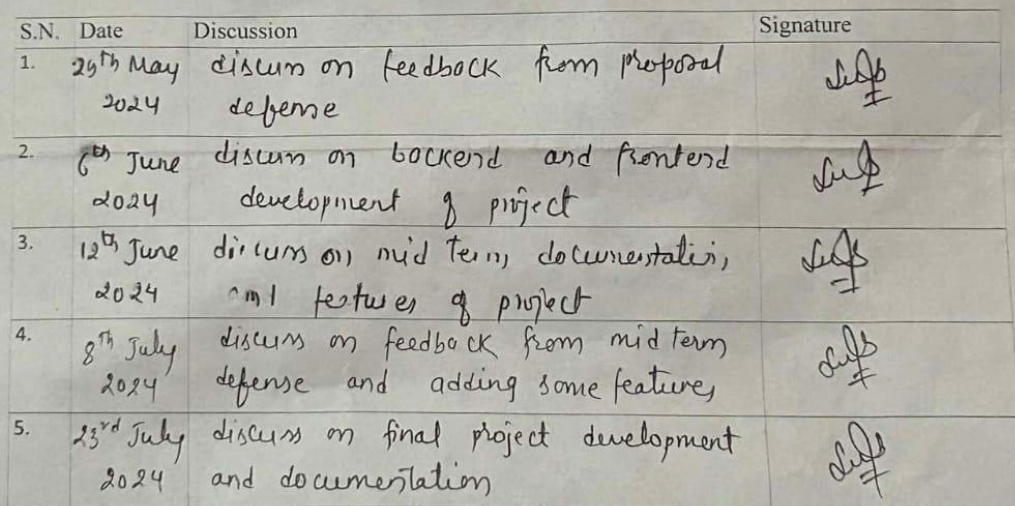 S.N. Date Discussion Signature
1. 29th May discuss on feedback from proposal
2024 defense
2. 6th June discuss on backend and frontend
2024 development of project
3. 12th June discuss on mid term, documentation,
2024 and features of project
4. 8th July discuss on feedback from mid term
2024 defense and adding some features
5. 23rd July discuss on final project development
2024 and documentation